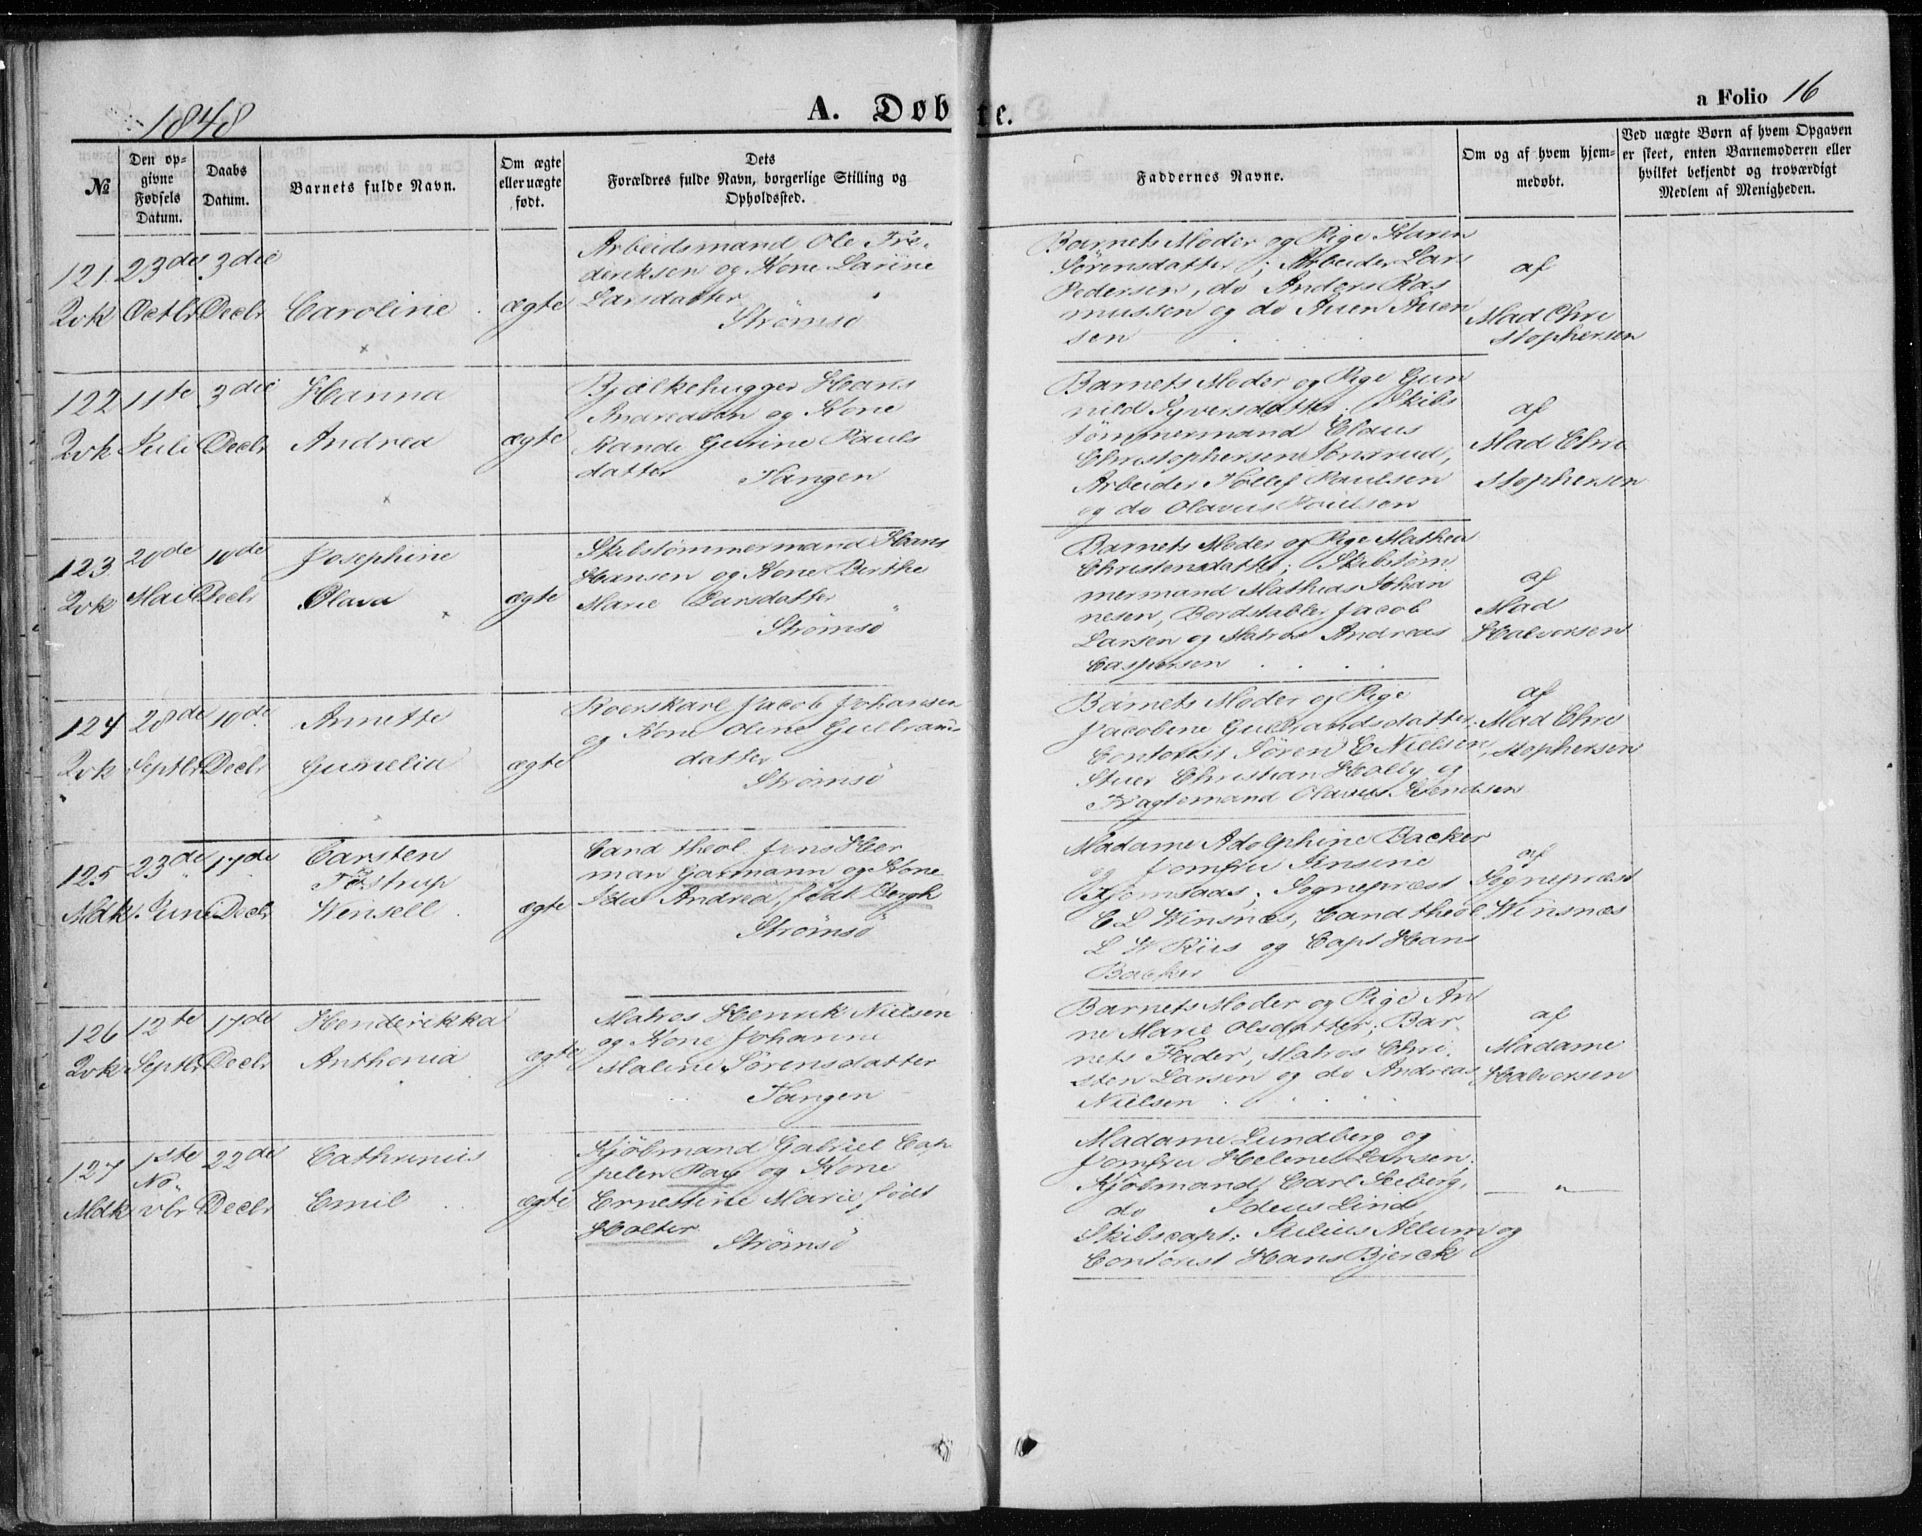 1848
A. Døbte.
a Folio 16
№
Den op-
givne
Fødsels
Datum.
Daabs
Datum.
Barnets fulde Navn.
Om ægte
eller uægte
født.
Dets
Forældres fulde Navn, borgerlige Stilling og
Opholdssted.
Faddernes Navne.
Om og af hvem hjem-
medøbt.
Ved uægte Børn af hvem Opgaven
er skeet, enten Barnemoderen eller
hvilket bekjendt og troværdigt
Medlem af Menigheden.
121
Qvk
23de
Octbr
3die
Decbr
Caroline
ægte
Arbeidsmand Ole Fre-
deriksen og Kone Larine
Larsdatter
Strømsö
Barnets Moder og Pige Karen
Sörensdatter; Arbeider Lars
Pedersen, do Anders Ras
mussen og do Auen Auen
sen
af
Mad Chri
stophersen
122
Qvk
11te
Juli
3die
Decbr
Hanna
Andrea
ægte
Bjælkehugger Hans
Andreasen og Kone
Rande Gurine Pauls
datter
Tangen
Barnets Moder og Pige Gun
nild Syversdatter; Skibs
tömmermand Claus
Christophersen Jonsrud,
Arbeider Tollef Paulsen
og do Olavus Poulsen
af
Mad Chri
stophersen
123
Qvk
20de
Mai
10de
Decbr
Josephine
Olava
ægte
Skibstömmermand Hans
Hansen og Kone Birthe
Marie Larsdatter
Strømsö
Barnets Moder og Pige Mathea
Christensdatter; Skibstöm
mermand Mathias Johan
nesen, Bordstabler Jacob
Larsen og Matros Andreas
Caspersen
af
Mad
Halvorsen
124
Qvk
28de
Septbr
10de
Decbr
Annette
Gumelia
ægte
Roerskarl Jacob Johansen
og Kone Oline Gulbrands
datter
Strømsö
Barnets Moder og Pige
Jacobine Gulbrandsdatter;
Contorist Sören C Nielsen
Stuer Christian Holby og
Fragtemand Olavus Svendsen
af
Mad Chri
stophersen
125
Mdk
23de
Juni
17de
Decbr
Carsten
Tostrup
Winsell
ægte
Cand theol Jens Her
man Garmann og Kone
Ida Andrea, född Bergh
Strømsö
Madame Adolphine Backer
og Jomfru Jensine
Hjomsaas; Sognepræst
C L Winsnes, Cand theol
L W Riis og Capt Hans
Backer
af
Sognepræst
Winsnes
126
Qvk
12te
Septbr
17de
Decbr
Henderikka
Anthonia
ægte
Matros Henrik Nielsen
og Kone Johanne
Maline Sörensdatter
Tangen
Barnets Moder og Pige An
ne Marie Olsdatter; Bar-
nets Fader, Matros Chri-
sten Larsen og do Andreas
Nielsen
af
Madame
Halvorsen
127
Mdk
1ste
No-
vbr
22de
Decbr
Cathrinus
Emil
ægte
Kjöbmand Gabriel Cap
pelen Pay og Kone
Ernestine Marie, födt
Holter
Strømsö
Madame Lundberg og
Jomfru Helene Larsen;
Kjöbmand Carl Seeberg,
do Ideus Lind,
Skibscapt: Julius Allum og
Contorist Hans Bjerck
— " —